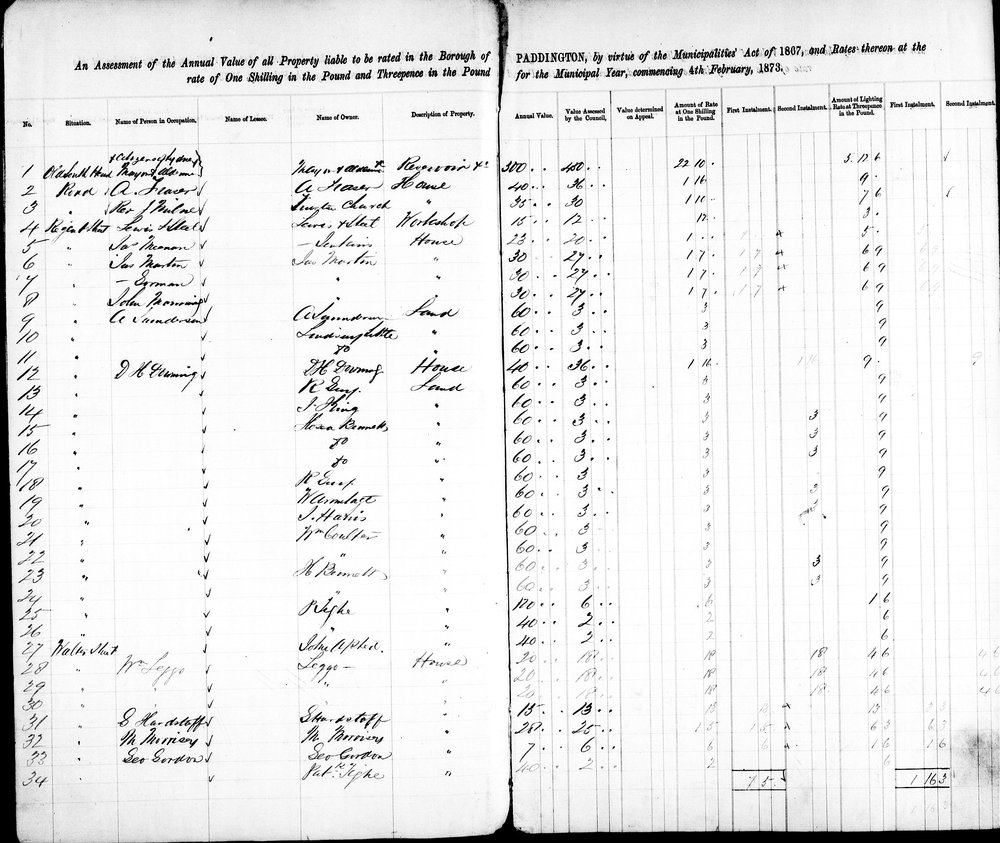 An Assessment of the Annual Value of all Property liable to be rated in the Borough of PADDINGTON, by virtue of the Municipalities' Act of 1867, and Rates thereon at the
rate of One Shilling in the Pound and Threepence in the Pound for the Municipal Year, commencing 4th February, 1873.
No. Situation. Name of Person in Occupation. Name of Lessee. Name of Owner. Description of Property. Annual Value. Value Assessed by the Council. Value determined on Appeal. Amount of Rate at One Shilling in the Pound. First Instalment. Second Instalment. Amount of Lighting Rate at Threepence in the Pound. First Instalment. Second Instalment.
1 Reservoir 22 10 3 12 6
2 Road A Fraser A Fraser House 40 36 1 16 9
3 " Rev J Milne Church " 35 30 1 10 7 6
4 Regent Street Lewis & Steel Lewis & Steel Workshop 15 12 12 3
5 " Jas Jenkins House 23 20 1 5
6 " Jas Morton Jas Morton " 30 27 1 7 1 7 6 9
7 " " 30 27 1 7 1 7 6 9
8 " John Manning " 30 27 1 7 6 9
9 " A Saunderson A Saunderson Land 60 3 3 9
10 " " 60 3 3 9
11 " Do " 60 3 3 9
12 " D H Deuning D H Deuning House 40 36 1 16 1 16 9 9
13 " R Guy Land 60 3 3 9
14 " J King " 60 3 3 9
15 " Bennett " 60 3 3 3 9
16 " Do " 60 3 3 3 9
17 " Do " 60 3 3 3 9
18 " R Guy " 60 3 3 9
19 " W Armitage " 60 3 3 3 9
20 " J. Harris " 60 3 3 3 9
21 " Wm Coulter " 60 3 3 9
22 " " " 60 3 3 9
23 " H Bennett " 60 3 3 3 9
24 " " " 60 3 3 3 9
25 " P Tighe " 120 6 6 1 6
26 " " 40 2 2 6
27 Walter Street John " 40 2 2 6
28 " Wm Leggo Leggo House 20 18 18 18 4 6 4 6
29 " " " " 20 18 18 18 4 6 4 6
30 " " 20 18 18 18 4 6 4 6
31 " G Hardstaff G Hardstaff " 15 13 13 13
32 " M Morrisey M Morrisey " 28 25 1 5 1 5 6 3 6 3
33 " Geo Gordon Geo Gordon " 7 6 6 6 1 6 1 6
34 " Patk Tighe " 40 2 2 6
7 5 1 16 3